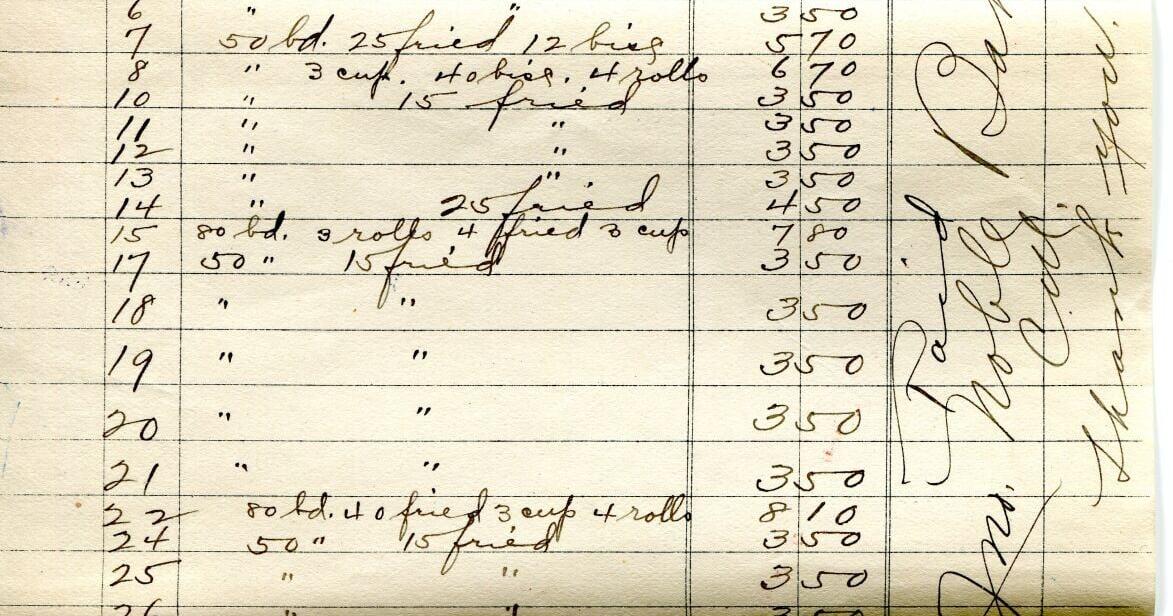 6 " " 3 50
7 50 bd. 25 fried 12 bisc 5 70
8 " 3 cup. 40 bisc. 4 rolls 6 70
10 " 15 fried 3 50
11 " " 3 50
12 " " 3 50
13 " " 3 50
14 " 25 fried 4 50
15 80 bd. 3 rolls 4 fried 3 cup 7 80
17 50 " 15 fried 3 50
18 " " 3 50
19 " " 3 50
20 " " 3 50
21 " " 3 50
22 80 bd. 40 fried 3 cup 4 rolls 8 10
24 50 " 15 fried 3 50
25 " " 3 50
26 " " 3 50
Paid
Jno. Noble
Thank You.